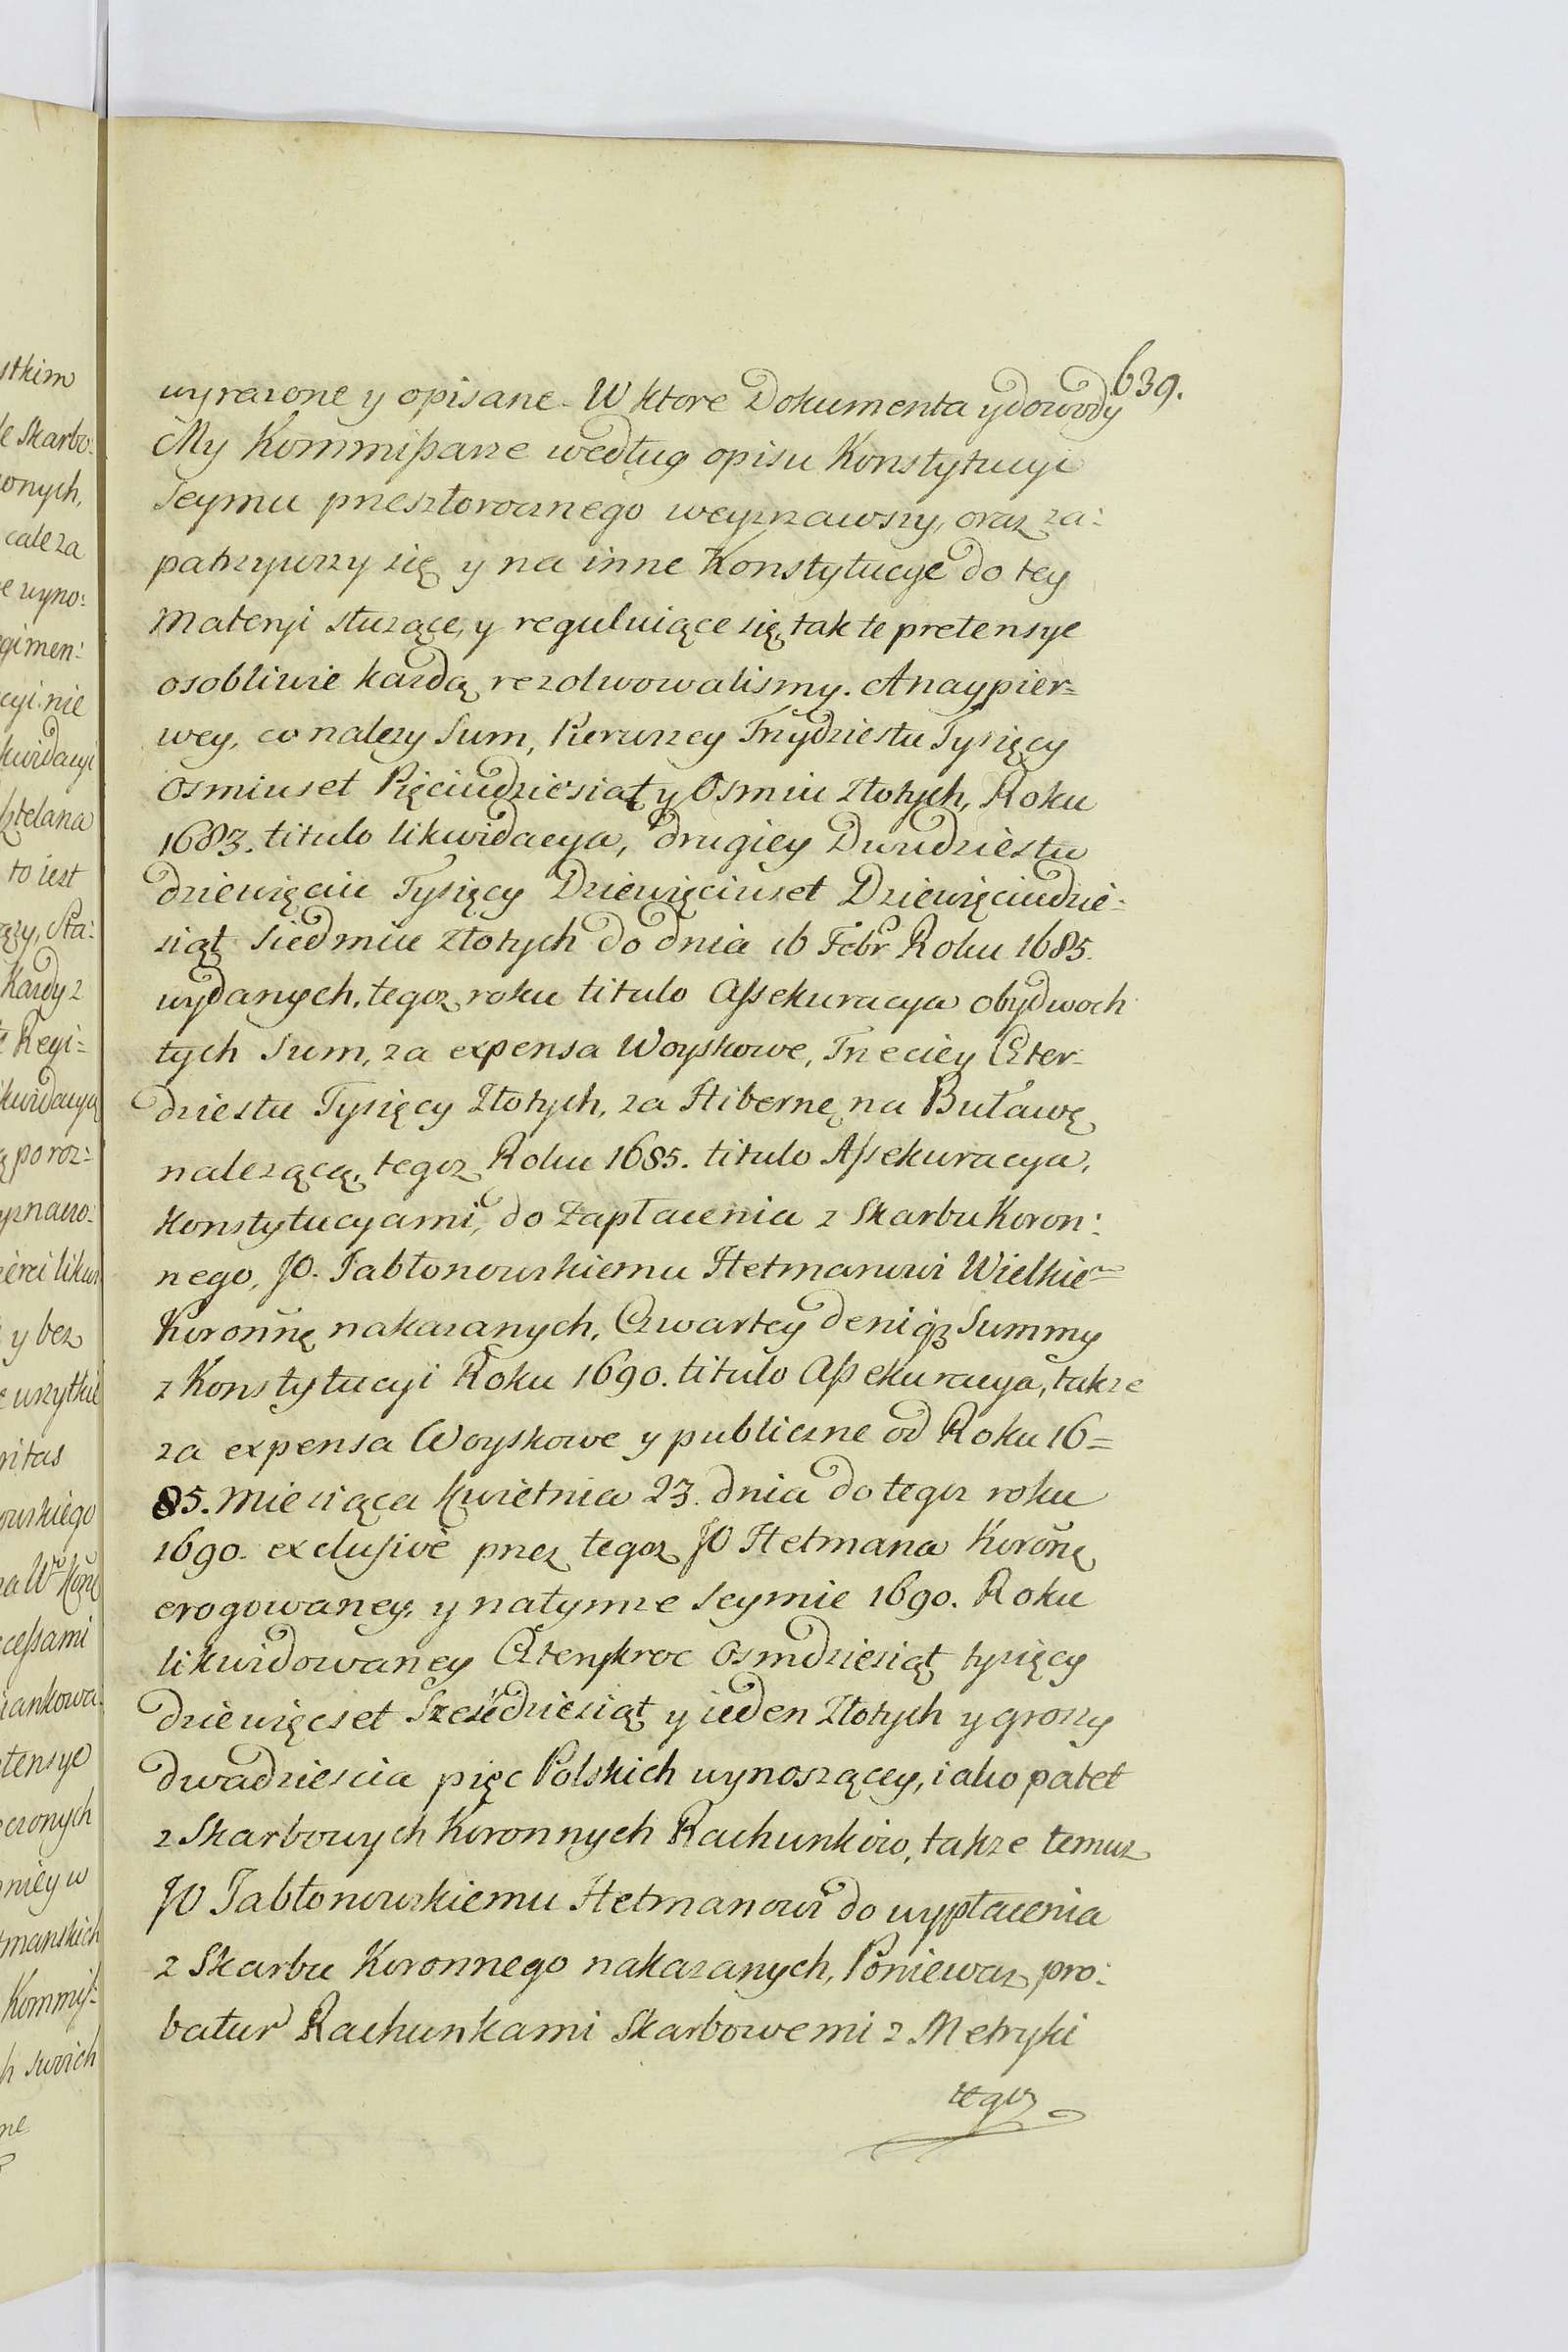 639.
wyrazone y opisane. W ktore Dokumenta y dowody
My Kommißarze według opisu Konstytucyi
Seymu przeszłorocznego weyrzawszy, oraz za:
patrzywszy się y na inne Konstytucye do tey
Materyi słuzące, y reguluiące się, tak te pretensye
osobliwie kazdą rezolwowalismy. A naypier=
wey, co nalezy Sum, Pierwszey Trzydziestu Tysięcy
Osmiuset Pięciudziesiąt y Osmiu Złotych, Roku
1683. titulo likwidacya, drugiey Dwudziestu
dziewięciu Tysięcy Dziewięciuset Dziewięciudzie:
siąt Siedmiu Złotych do dnia 16 Febr Roku 1685.
wydanych, tegoz roku titulo Aſsekuracya obydwoch
tych Sum, za expensa Woyskowe, Trzeciey Czter=
dziestu Tysięcy Złotych, za Hibernę na Buławę
nalezącą, tegoz Roku 1685. titulo Aſsekuracya,
Konstytucyami, do Zapłacenia z Skarbu Koron:
nego, JO. Jabłonowskiemu Hetmanowi Wielkie
Koronnę nakazanych, Czwartey deniqz Summy
z Konstytucyi Roku 1690. titulo Aſsekuracya, takze
za expensa Woyskowe y publiczne od Roku 16=
85. Miesiąca Kwietnia 23. dnia do tegoz roku
1690. exclusivè przez tegoz JO Hetmana Koronę
erogowaney, y natymze Seymie 1690. Roku
likwidowaney Czterykroc Osmdziesiąt tysięcy
dziewięcset Szescdziesiąt y ieden Złotych y groszy
dwadziescia pięc Polskich wynoszącey, iako patet
z Skarbowych Koronnych Rachunkow, takze temuz
JO Jabłonowskiemu Hetmanowi do wypłacenia
z Skarbu Koronnego nakazanych, Poniewaz pro:
batur Rachunkami Skarbowemi z Metryki
tegoz